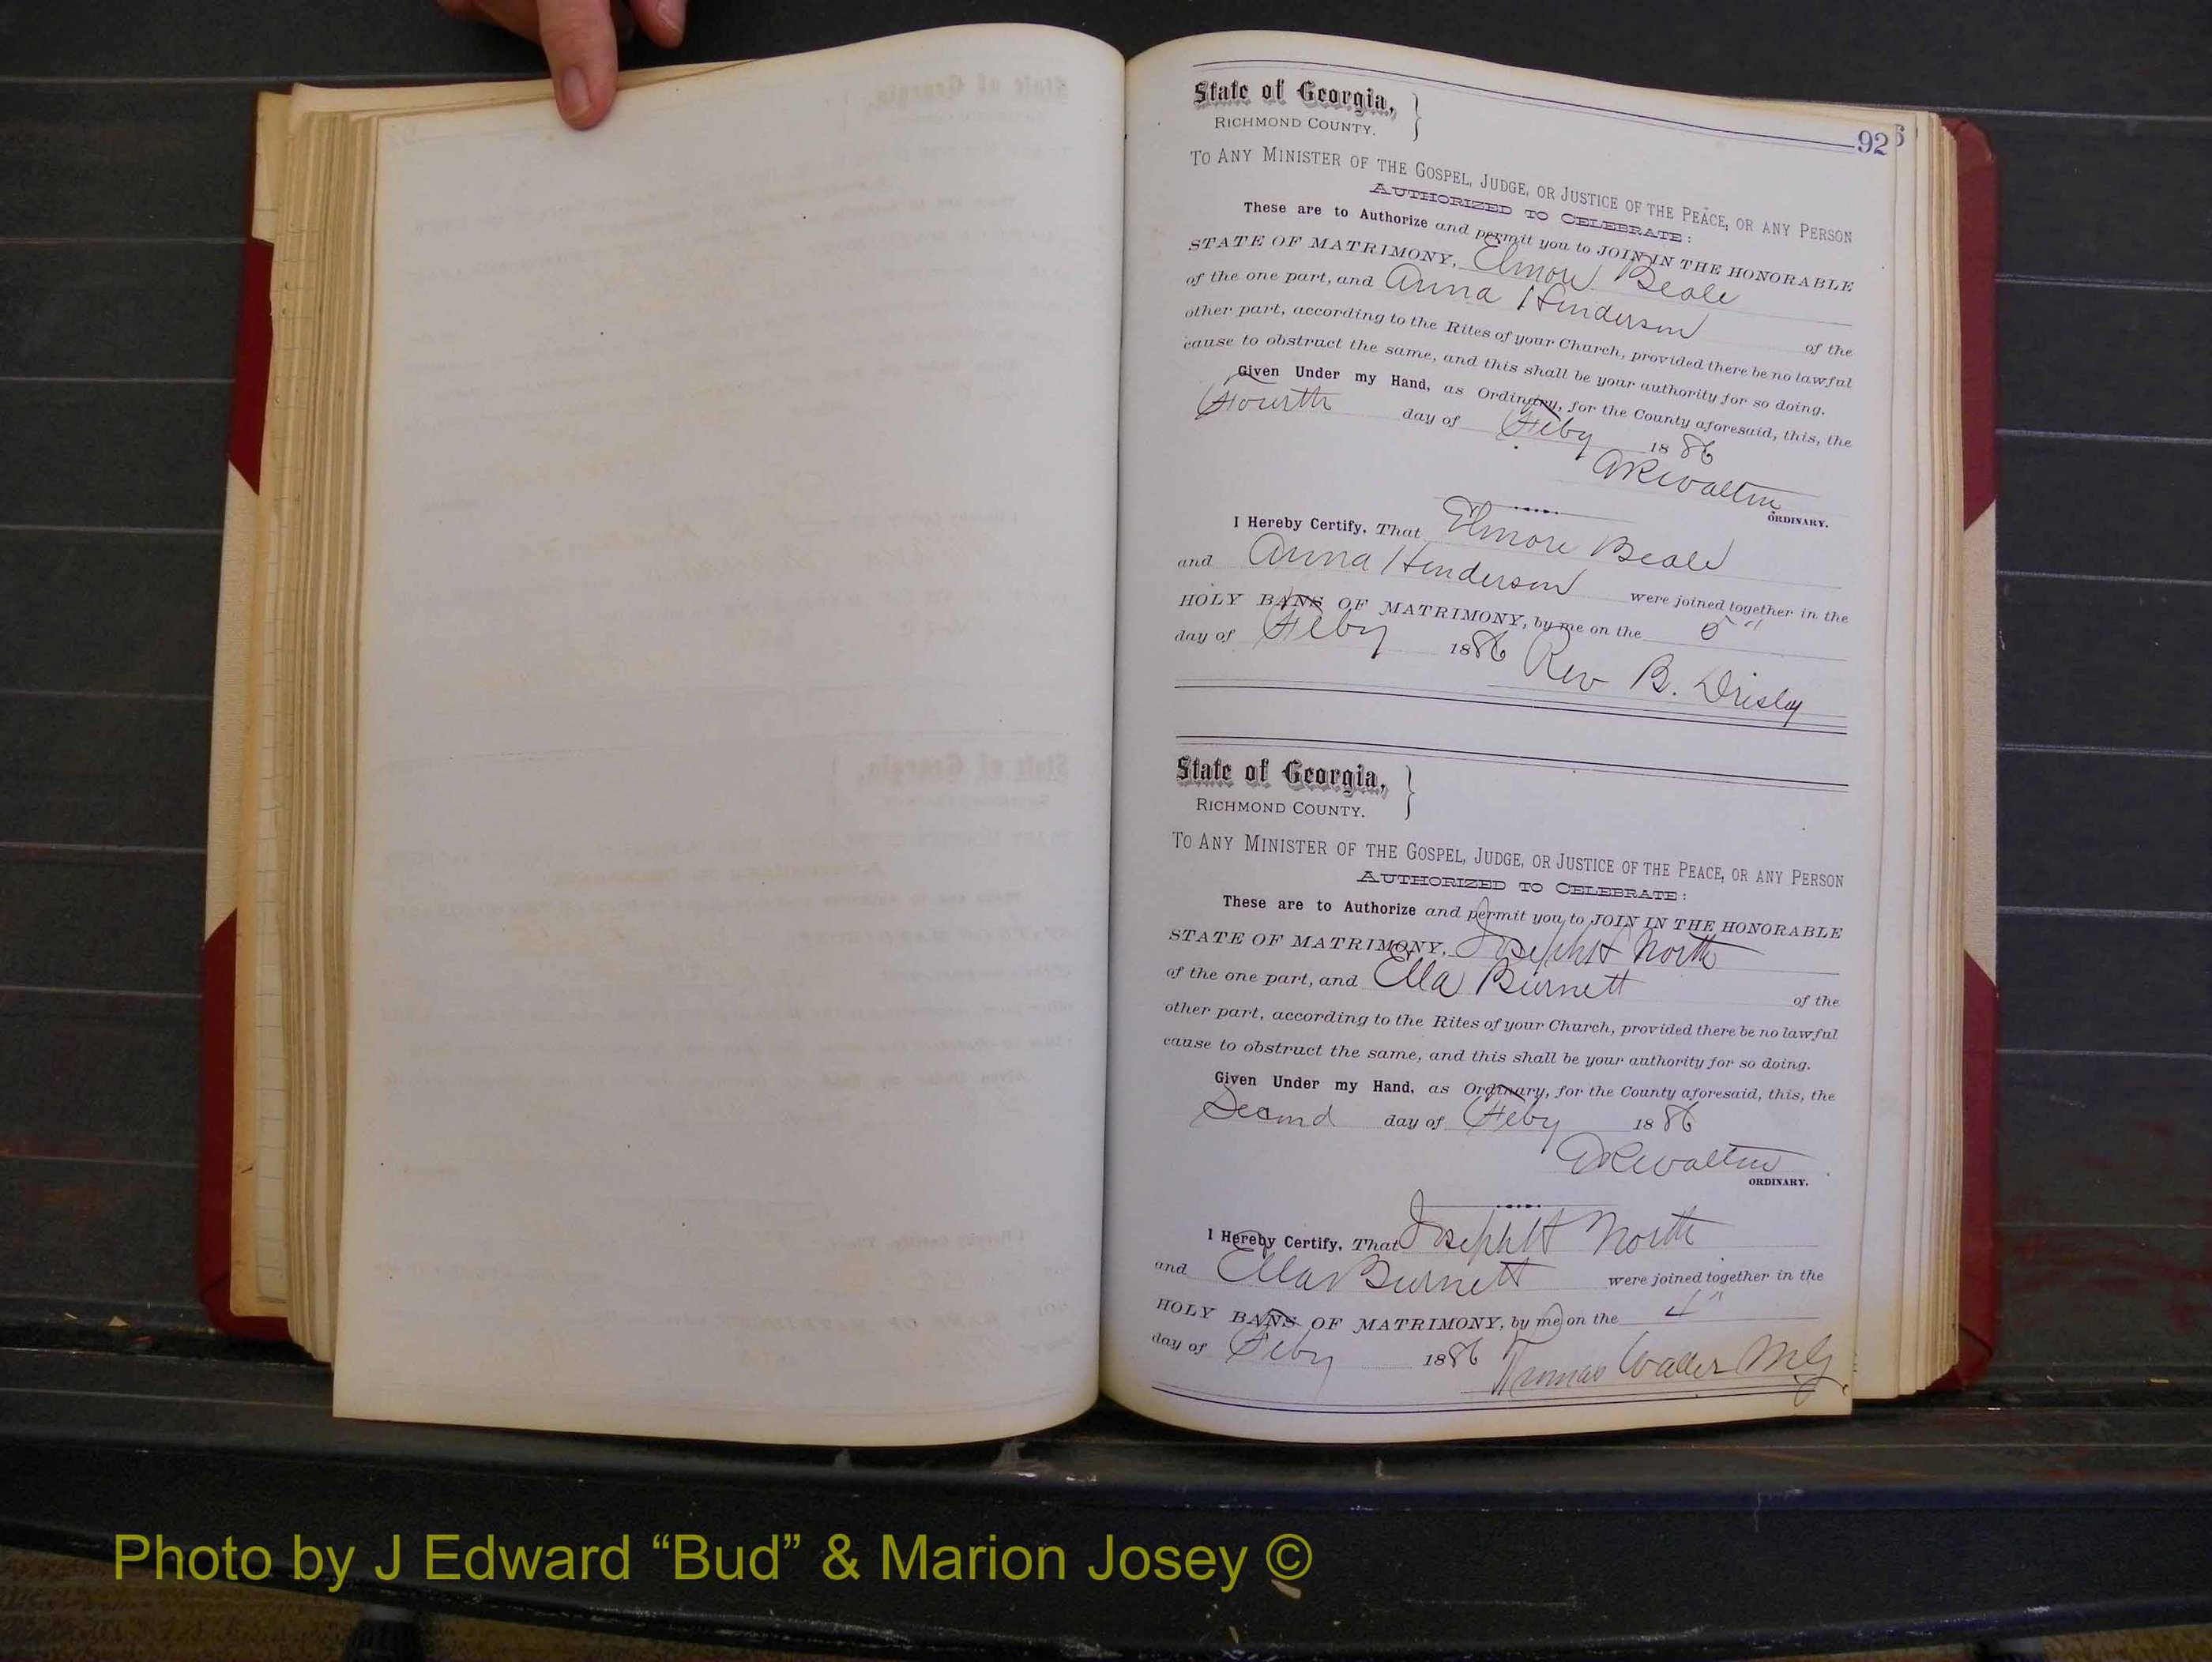 92
State of Georgia,
RICHMOND COUNTY.
TO ANY MINISTER OF THE GOSPEL, JUDGE, OR JUSTICE OF THE PEACE, OR ANY PERSON
AUTHORIZED TO CELEBRATE:
These are to Authorize and permit you to JOIN IN THE HONORABLE
STATE OF MATRIMONY, Elmore Beale
of the one part, and Anna Henderson of the
other part, according to the Rites of your Church, provided there be no lawful
cause to obstruct the same, and this shall be your authority for so doing.
Given Under my Hand, as Ordinary, for the County aforesaid, this, the
Fourth day of Feby 1886
Walton
ORDINARY.
I Hereby Certify, That Elmore Beale
and Anna Henderson were joined together in the
HOLY BANS OF MATRIMONY, by me on the 5"
day of Feby 1886 Rev B.
State of Georgia,
RICHMOND COUNTY.
TO ANY MINISTER OF THE GOSPEL, JUDGE, OR JUSTICE OF THE PEACE, OR ANY PERSON
AUTHORIZED TO CELEBRATE:
These are to Authorize and permit you to JOIN IN THE HONORABLE
STATE OF MATRIMONY, Joseph H North
of the one part, and Ella Burnett of the
other part, according to the Rites of your Church, provided there be no lawful
cause to obstruct the same, and this shall be your authority for so doing.
Given Under my Hand, as Ordinary, for the County aforesaid, this, the
Second day of Feby 1886
Walton
ORDINARY.
I Hereby Certify, That Joseph H North
and Ella Burnett were joined together in the
HOLY BANS OF MATRIMONY, by me on the 4"
day of Feby 1886 Thomas Walker MG
Photo by J Edward “Bud” & Marion Josey ©